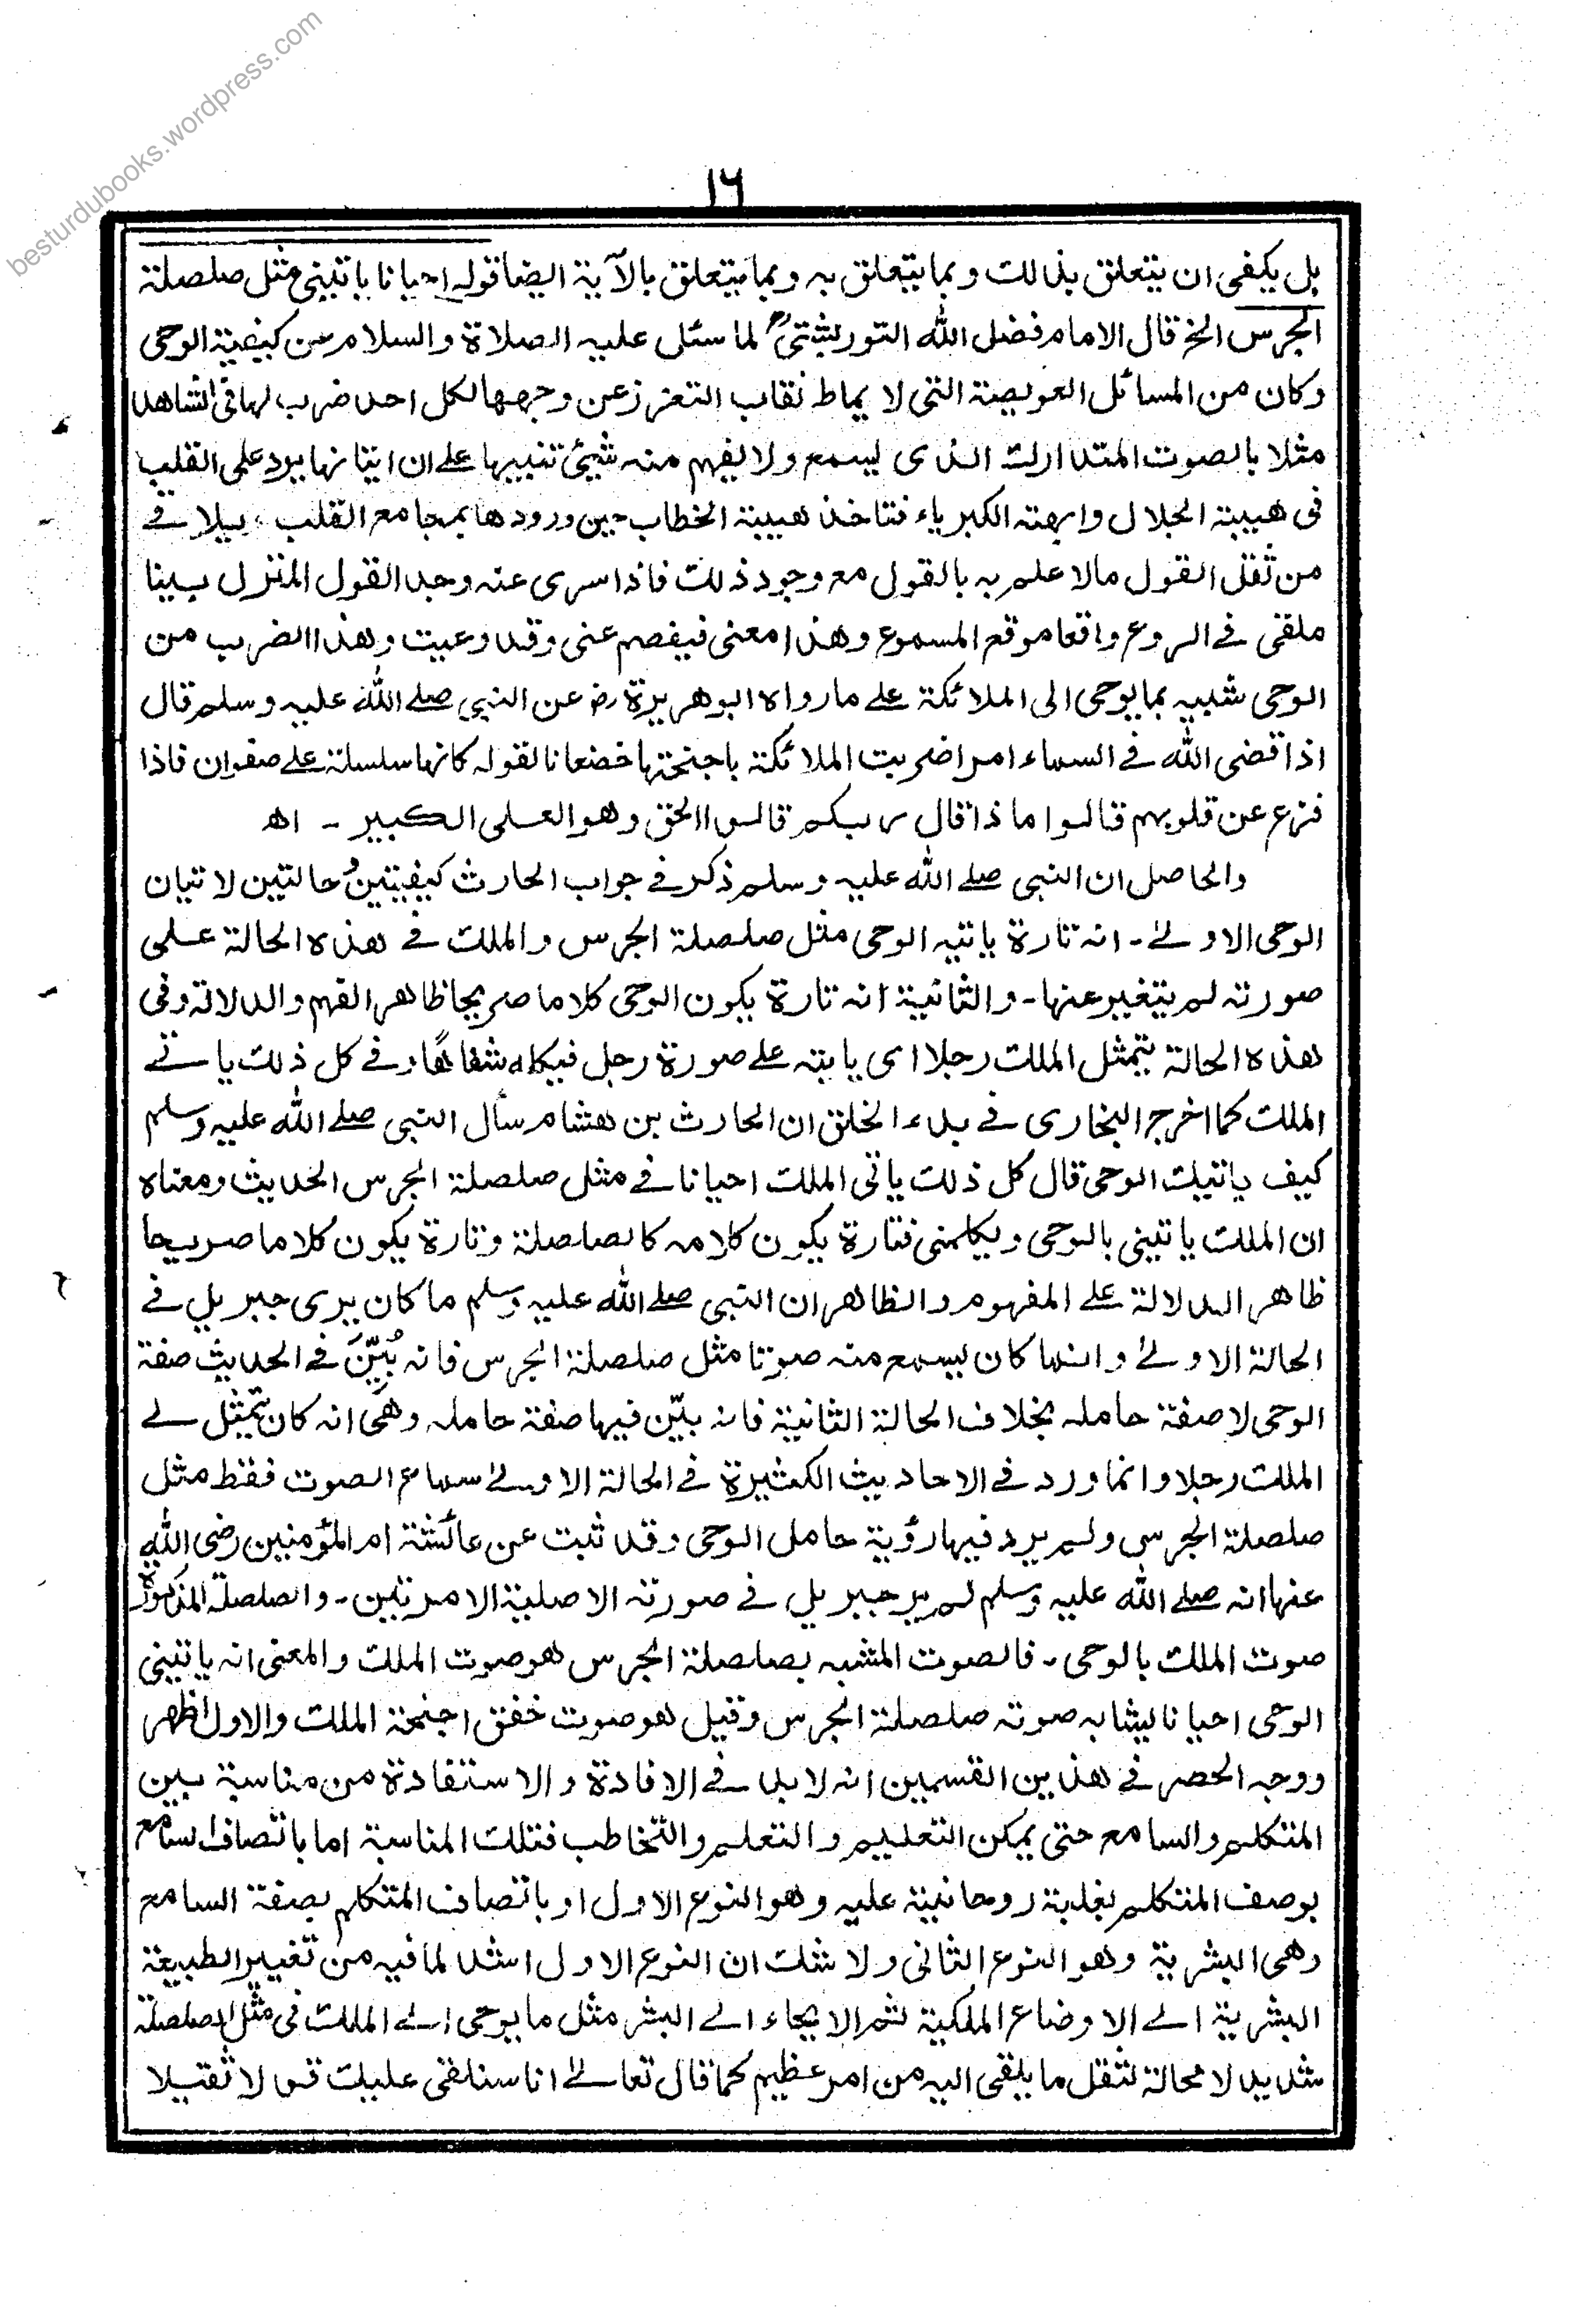 besturdubooks.wordpress.com
١٦
بل يكفى ان يتعلق بذالك و بما يتعلق به وبما يتعلق بالآية ايضا قوله احيانا ياتينى مثل صلصلة
الجرس الخ قال الامام فضل الله التوربشتىؒ لما سئل عليه الصلاة والسلام عن كيفية الوحى
وكان من المسائل العويصة التى لا يماط نقاب التعزز عن وجهها لكل احد ضرب لها فى الشاهد
مثلا بالصوت المتدارك الذى يسمع ولا يفهم منه شيئ تنبيها على ان اتيانها يرد على القلب
فى هيبة الجلال وابهة الكبرياء فتاخذ هيبة الخطاب حين ورودها بمجامع القلب ويلاقى
من ثقل القول مالا علم به بالقول مع وجود ذلك فاذا سرى عنه وجد القول المنزل بينا
ملقى فى الروع واقعا موقع المسموع وهذا معنى فيفصم عنى وقد وعيت وهذا الضرب من
الوحى شبيه بما يوحى الى الملائكة على ما رواه ابوهريرة رض عن النبى صلى الله عليه وسلم قال
اذا قضى الله فى السماء امرا ضربت الملائكة باجنحتها خضعانا لقوله كانها سلسلة على صفوان فاذا
فزع عن قلوبهم قالوا ماذا قال ربكم قالوا الحق وهو العلى الكبير ـ اه
والحاصل ان النبى صلى الله عليه وسلم ذكر فى جواب الحارث كيفيتين و حالتين لاتيان
الوحى الاولى ـ انه تارة ياتيه الوحى مثل صلصلة الجرس والملك فى هذه الحالة على
صورته لم يتغير عنها ـ والثانية انه تارة يكون الوحى كلاما صريحا ظاهر الفهم والدلالة وفى
هذه الحالة يتمثل الملك رجلا اى ياتيه على صورة رجل فيكلمه شفاها و فى كل ذلك ياتى
الملك كما اخرج البخارى فى بدء الخلق ان الحارث بن هشام سأل النبى صلى الله عليه وسلم
كيف ياتيك الوحى قال كل ذلك ياتى الملك احيانا فى مثل صلصلة الجرس الحديث ومعناه
ان الملك ياتينى بالوحى ويكلمنى فتارة يكون كلامه كالصلصلة وتارة يكون كلاما صريحا
ظاهر الدلالة على المفهوم والظاهر ان النبى صلى الله عليه وسلم ما كان يرى جبريل فى
الحالة الاولى وانما كان يسمع منه صوتا مثل صلصلة الجرس فانه بُيّنَ فى الحديث صفة
الوحى لا صفة حامله بخلاف الحالة الثانية فانه بيّن فيها صفة حامله وهى انه كان يتمثل لى
الملك رجلا وانما ورد فى الاحاديث الكثيرة فى الحالة الاولى سماع الصوت فقط مثل
صلصلة الجرس ولم يرد فيها رؤية حامل الوحى وقد ثبت عن عائشة ام المؤمنين رضى الله
عنها انه صلى الله عليه وسلم لم ير جبريل فى صورته الاصلية الا مرتين ـ والصلصلة المذكورة
صوت الملك بالوحى ـ فالصوت المشبه بصلصلة الجرس هو صوت الملك والمعنى انه ياتينى
الوحى احيانا يشابه صوته صلصلة الجرس وقيل هو صوت خفق اجنحة الملك والاول اظهر
ووجه الحصر فى هذين القسمين انه لابد فى الافادة والاستفادة من مناسبة بين
المتكلم والسامع حتى يمكن التعليم والتعلم والتخاطب فتلك المناسبة اما باتصاف السامع
بوصف المتكلم بغلبة روحانية عليه وهو النوع الاول او باتصاف المتكلم بصفة السامع
وهى البشرية وهو النوع الثانى ولا شك ان النوع الاول اشد لما فيه من تغيير الطبيعة
البشرية الى الاوضاع الملكية ثم الايحاء الى البشر مثل ما يوحى الى الملك فى مثل الصلصلة
شديد لا محالة لثقل ما يلقى اليه من امر عظيم كما قال تعالى انا سنلقى عليك قولا ثقيلا